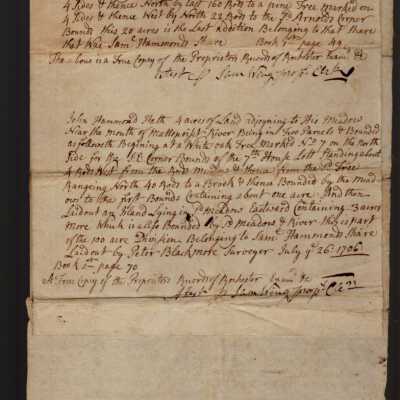 4 Rods & thence North by East 160 Rods to a pine Tree marked on
4 Sides & thence West by North 22 Rods to the Sd Arnolds Corner
Bounds this 20 acres is the Last Addition Belonging to that Share
that Was Saml Hammonds Share Book 1st page 49
The above is a True Copy of the Proprietors Records of Rochester Examd
Attest Pr Sam Wing Propr Clerk
John Hammond Hath 4 acres of Land adjoyning to His Meadow
Near the Mouth of Mattapoiset River Being in Two Parcels & Bounded
as followeth Begining at a White oak Tree Marked No 7 on the North
Side for the S E Corner Bounds of the 7th House Lott Standing about
4 Rods West from the Sd Meadow & thence from the Sd Tree
Ranging North 40 Rods to a Brook & thence Bounded by the Mead
ows to the first Bounds Containing about one acre And then
Laidout an Island Lying in Sd Meadows Eastward Containing 3 acres
more Which is all so Bounded by Sd Meadows & River this is part
of the 100 acre Division Belonging to Saml Hammonds Share
Laid out by Peter Blackmore Surveyer July ye 26: 1706
Book 1st page 70
A True Copy of the Proprietors Records of Rochester Examd
Attest Pr Sam Wing Propr Clerk